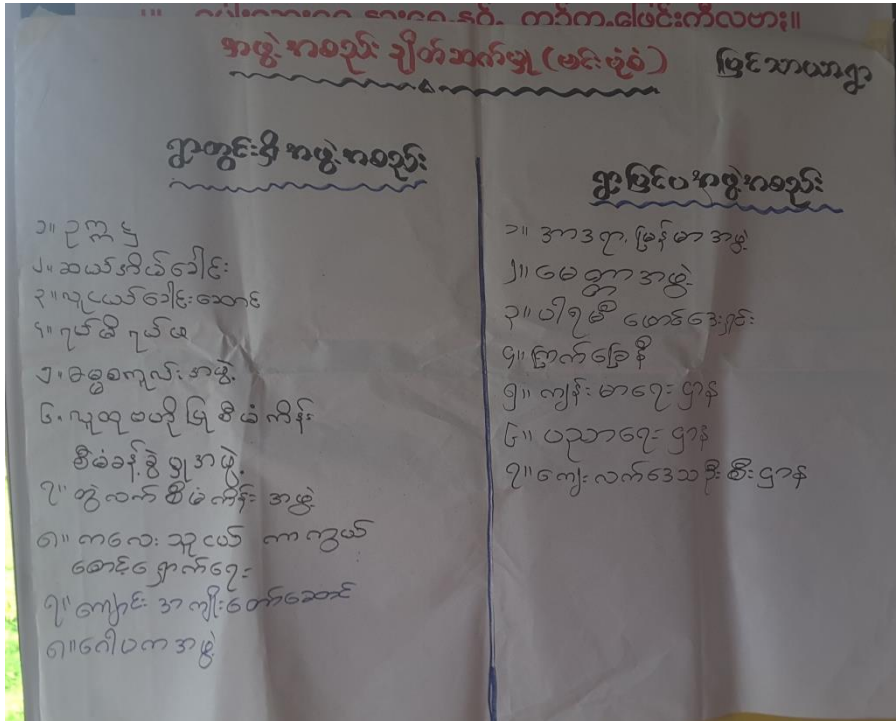 အဖွဲ့အစည်း ချိတ်ဆက်မှု (မင်းဗုံစံ) ပြင်သာယာရွာ
ရွာတွင်းရှိ အဖွဲ့အစည်း
၁။ ဥက္ကဋ္ဌ
၂။ ဆယ်အိမ်ခေါင်း
၃။ လူငယ်ခေါင်းဆောင်
၄။ ရပ်မိ ရပ်ဖ
၅။ ဓမ္မစကူလ်း အဖွဲ့
၆။ လူထု ဗဟိုပြု စီမံကိန်း
စီမံခန့်ခွဲမှုအဖွဲ့
၇။ တွဲလက် စီမံကိန်း အဖွဲ့
၈။ ကလေး သူငယ် ကာကွယ်
စောင့်ရှောက်ရေး
၇။ ကျောင်း အကျိုးတော်ဆောင်
၈။ ဂေါပကအဖွဲ့
ရွာပြင်ပအဖွဲ့အစည်း
၁။ အာဒရာ,မြန်မာအဖွဲ့
၂။ မေတ္တာအဖွဲ့
၃။ ပါရမီ ဖောင်ဒေးရှင်း
၄။ ကြက်ခြေနီ
၅။ ကျန်းမာရေးဌာန
၆။ ပညာရေးဌာန
၇။ ကျေးလက်ဒေသဦးစီးဌာန